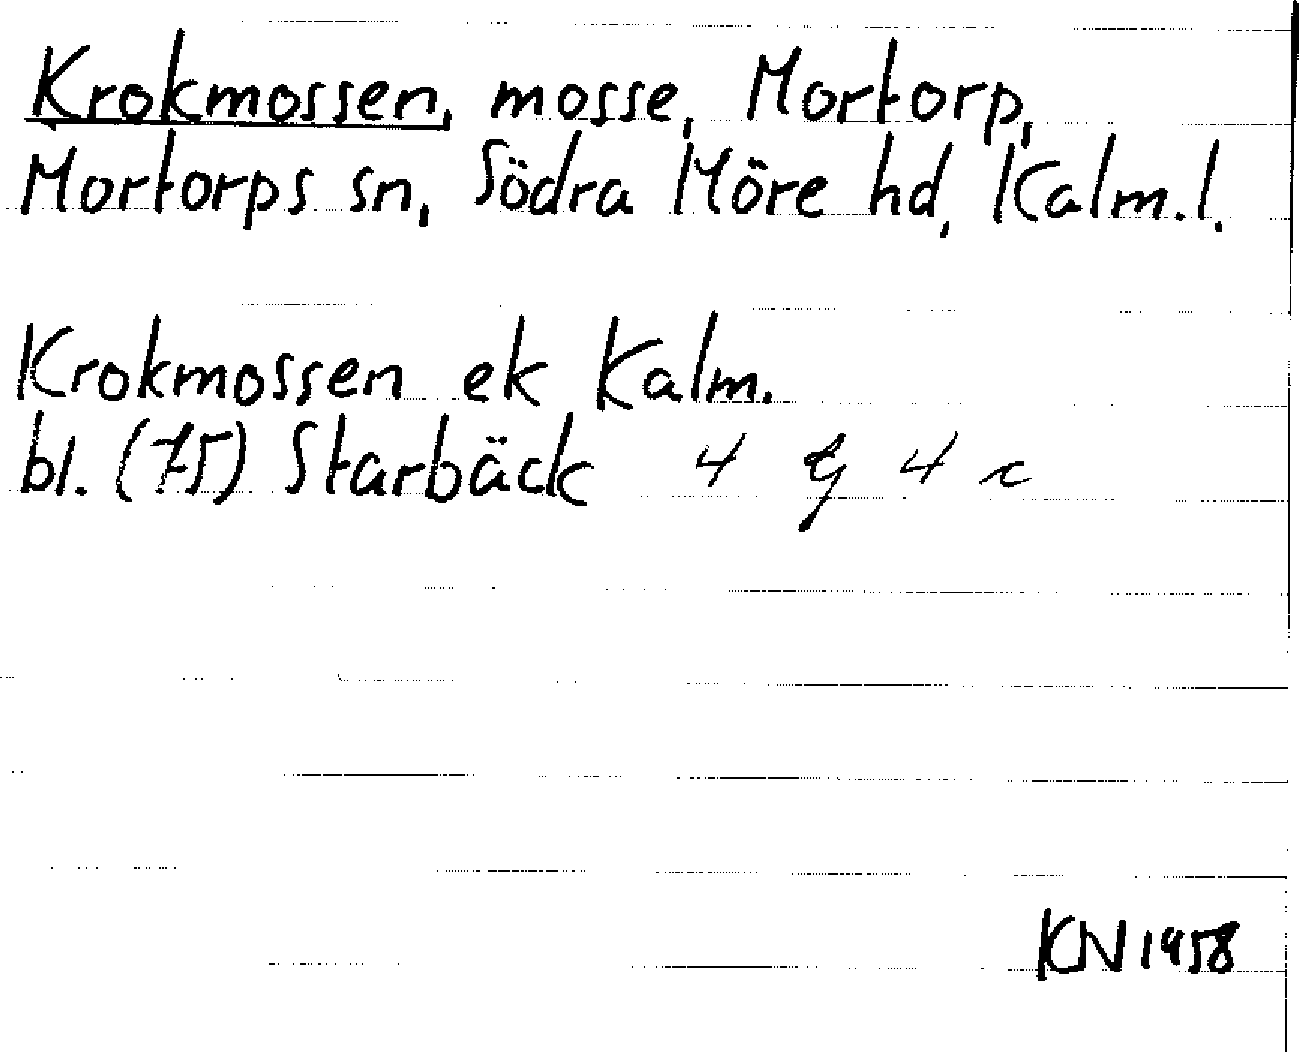 Krokmossen, mosse, Mortorp,
Mortorps sn, Södra Möre hd, Kalm.l.
Krokmossen ek Kalm.
bl. (75) Starbäck 4 G 4 c
KN 1958